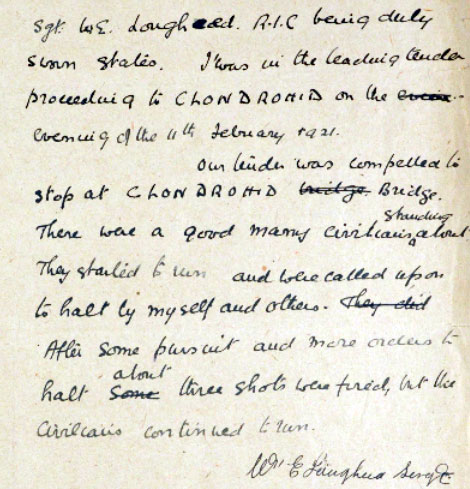 Sgt. W.E. Loughead. R.I.C being duly
sworn states. I was in the leading tender
proceeding to CLONDROHID on the
evening of the 11th February 1921.
Our tender was compelled to
stop at CLONDROHID bridge. Bridge.
standing
There were a good many civilians about
They started to run and were called upon
to halt by myself and others. They did
After some pursuit and more orders to
about
halt Some three shots were fired, but the
civilians continued to run.
Wm E Sergt.